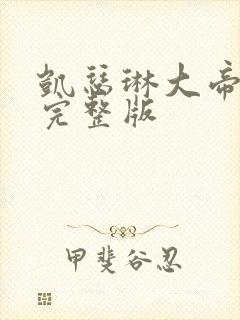 凯瑟琳大帝
完整版
甲斐谷忍